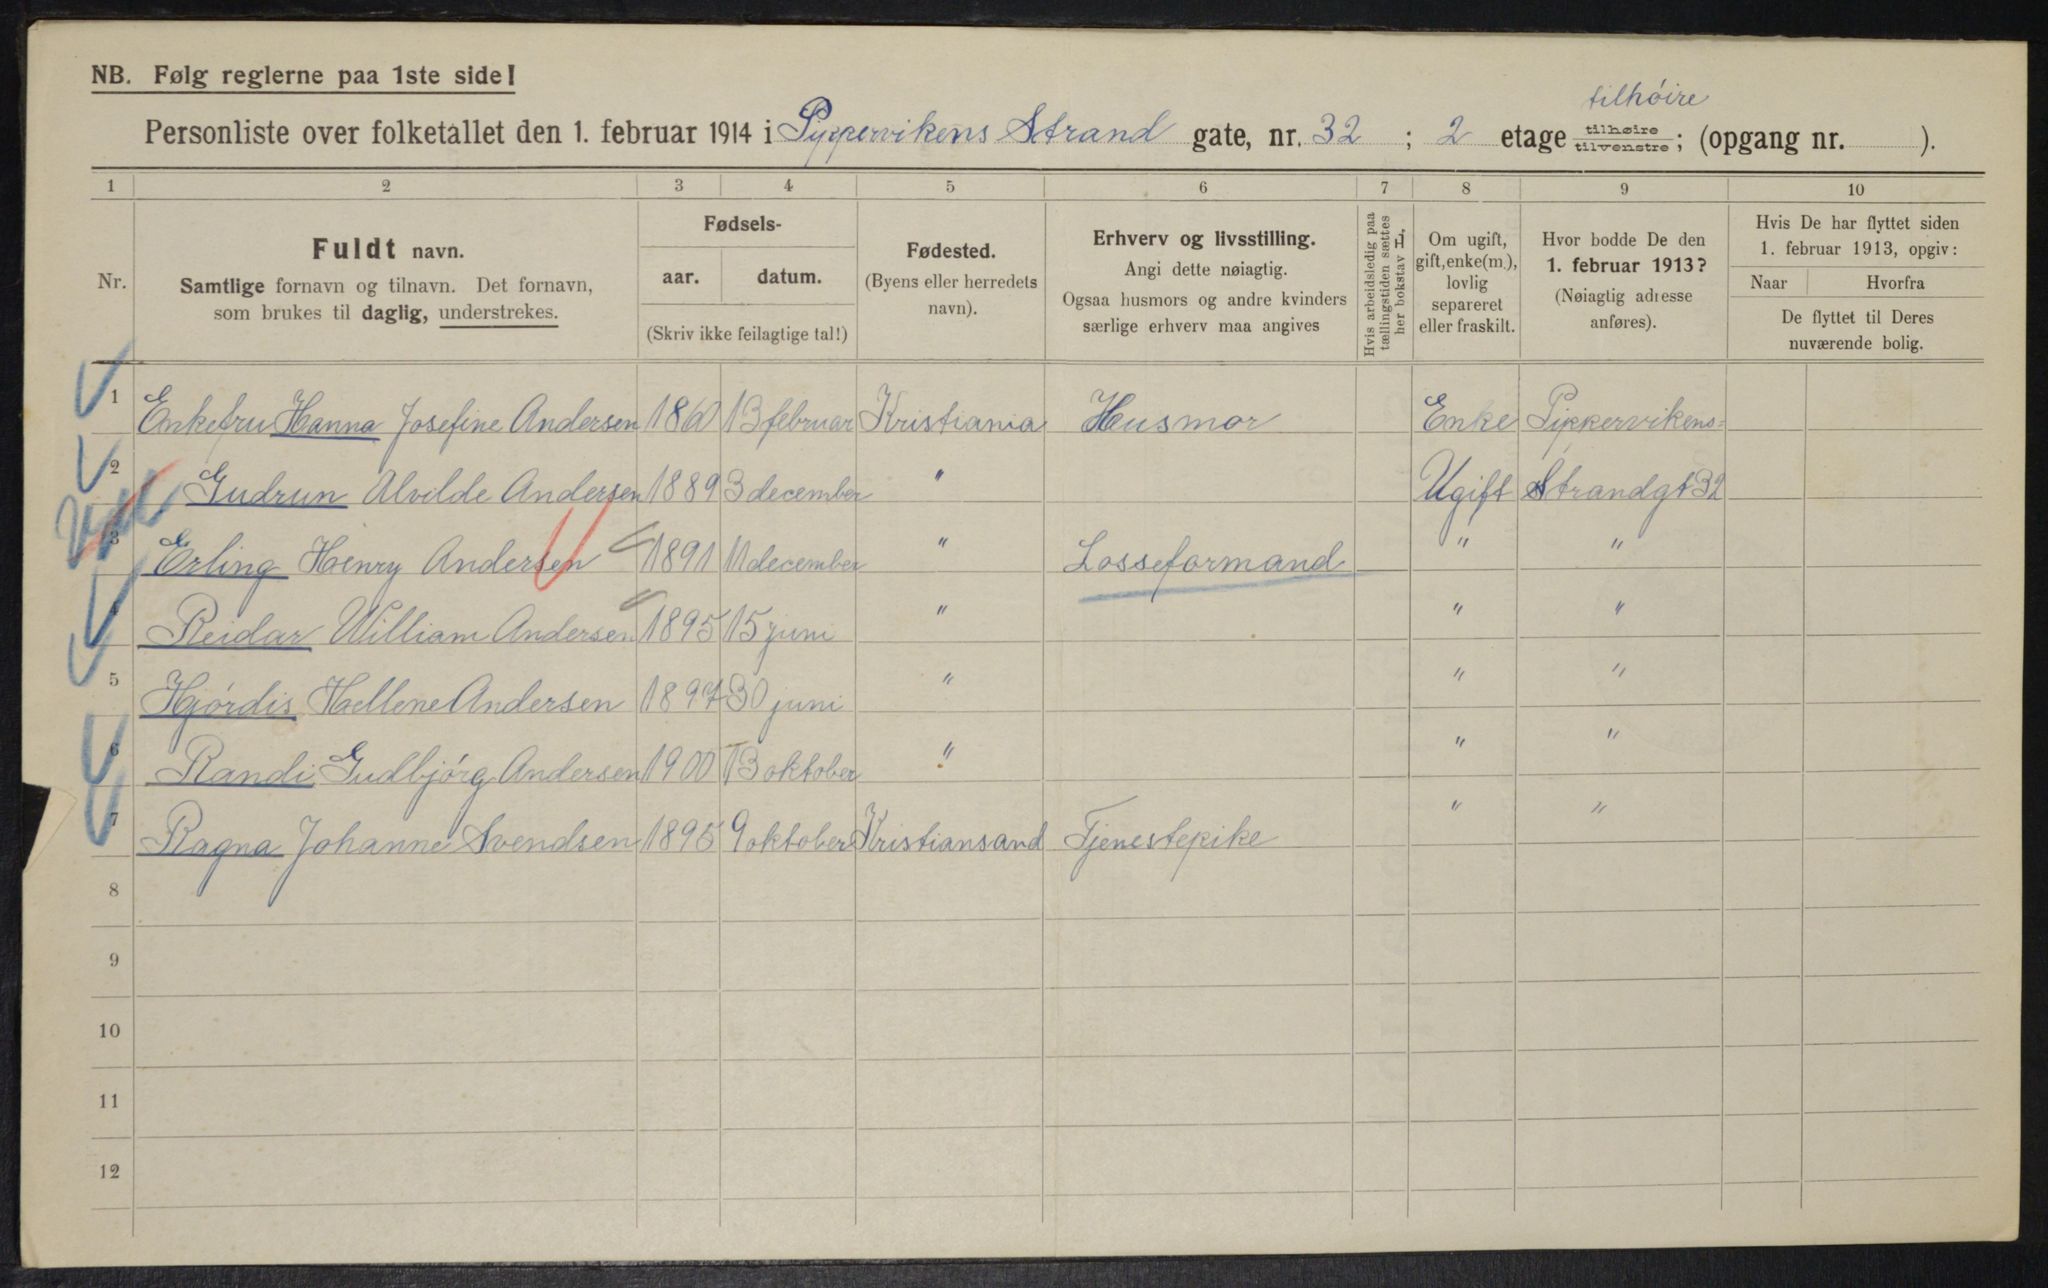 NB. Følg reglerne paa 1ste side!
tilhóire
Personliste over folketallet den 1. februar 1914 i Pippervikens Strand gate, nr. 32 ; 2 etage tilhøire tilvenstre; (opgang nr. ).
1 2 3 4 5 6 7 8 9 10
Nr.
Fuldt navn.
Samtlige fornavn og tilnavn. Det fornavn,
som brukes til daglig, understrekes.
Fødsels-
aar. datum.
(Skriv ikke feilagtige tal!)
Fødested.
(Byens eller herredets
navn).
Erhverv og livsstilling.
Angi dette nøiagtig.
Ogsaa husmors og andre kvinders
særlige erhverv maa angives
Hvis arbeidsledig paa
tællingstiden sættes
her bokstav H.
Om ugift,
gift, enke(m.),
lovlig
separeret
eller fraskilt.
Hvor bodde De den
1. februar 1913?
(Nøiagtig adresse
anføres).
Hvis De har flyttet siden
1. februar 1913, opgiv:
Naar Hvorfra
De flyttet til Deres
nuværende bolig.
1 Enkefru Hanna Josefine Andersen 1860 13 februar Kristiania Husmor Enke Pippervikens=
2 Gudrun Alvilde Andersen 1889 3 december " Ugift Strandgt 32
3 Erling Henry Andersen 1891 11 december " Losseformand " "
4 Reidar William Andersen 1895 15 juni " " "
5 Hjórdis Hellene Andersen 1897 30 juni " " "
6 Randi Gudbjórg Andersen 1900 13 oktober " " "
7 Ragna Johanne Svendsen 1895 9 oktober Kristiansand Tjenestepike " "
8
9
10
11
12